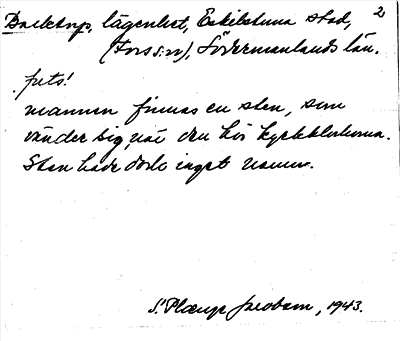 Backtorp, lägenhet, Eskilstuna stad, 2
(Fors sn), Södermanlands län.
finnas en sten, som
vänder sig, när den hör kyrkklockorna.
Sten hade dock inget namn.
1943.